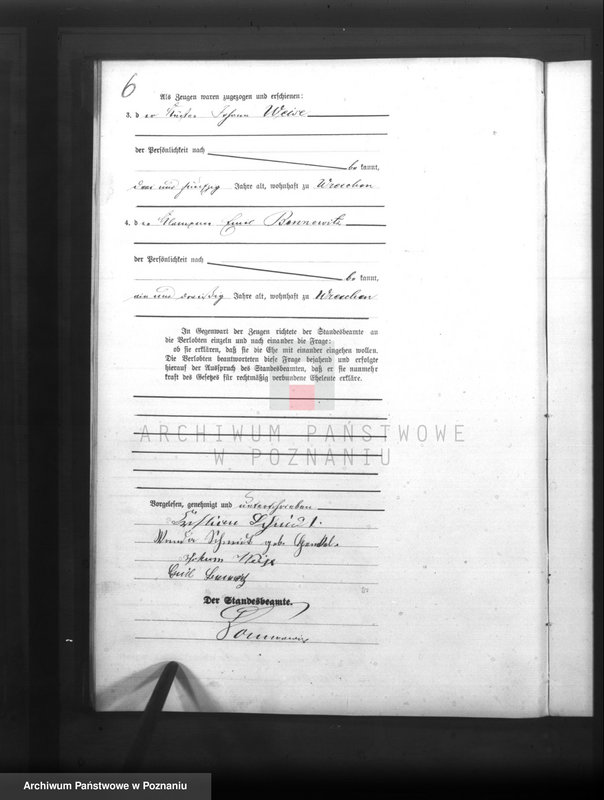 6
Als Zeugen waren zugezogen und erschienen:
3. d er Küster Johann Weise
der Persönlichkeit nach
be kannt,
drei und fünfzig Jahre alt, wohnhaft zu Wreschen
4. d er Klempner Emil Bennewitz
der Persönlichkeit nach
be kannt,
ein und dreißig Jahre alt, wohnhaft zu Wreschen
In Gegenwart der Zeugen richtete der Standesbeamte an
die Verlobten einzeln und nach einander die Frage:
ob sie erklären, daß sie die Ehe mit einander eingehen wollen.
Die Verlobten beantworteten diese Frage bejahend und erfolgte
hierauf der Ausspruch des Standesbeamten, daß er sie nunmehr
kraft des Gesetzes für rechtmäßig verbundene Eheleute erkläre.
ARCHIWUM PAŃSTWOWE
W POZNANIU
Vorgelesen, genehmigt und unterschrieben
Schmidt.
Wanda Schmidt geb.
Johann Weise
Der Standesbeamte.
Archiwum Państwowe w Poznaniu